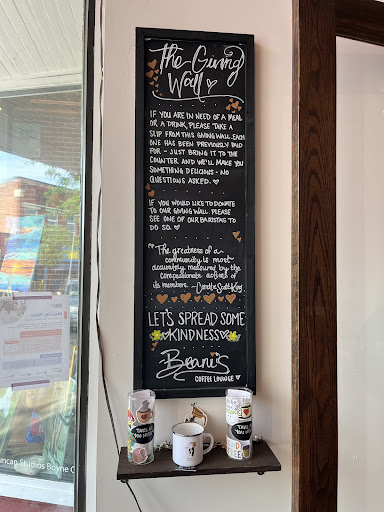 The Giving
Wall
IF YOU ARE IN NEED OF A MEAL
OR A DRINK, PLEASE TAKE A
SLIP FROM THIS GIVING WALL. EACH
ONE HAS BEEN PREVIOUSLY PAID
FOR - JUST BRING IT TO THE
COUNTER AND WE'LL MAKE YOU
SOMETHING DELICIOUS - NO
QUESTIONS ASKED.
IF YOU WOULD LIKE TO DONATE
TO OUR GIVING WALL, PLEASE
SEE ONE OF OUR BARISTAS TO
DO SO.
"The greatness of a
community is most
accurately measured by the
compassionate actions of
its members. - Coretta Scott King
LET'S SPREAD SOME
KINDNESS
Beani's
COFFEE LOUNGE
TAKE
YOU
TAKE
YOU
Studios Boyne C